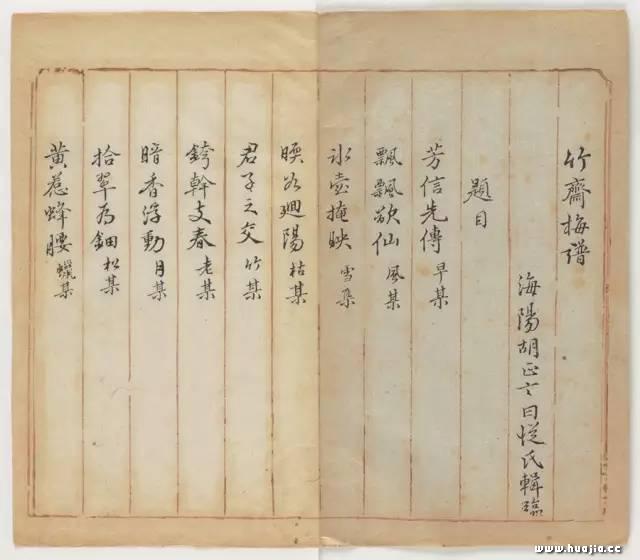 竹齋梅譜
海陽胡正言曰從氏輯臨
題目
芳信先傳 早某
飄飄欲仙 風某
冰壺掩映 雪某
暖谷迴陽 枯某
君子之交 竹某
幹支春 老某
暗香浮動 月某
拾翠為鈿 松某
黃惹蜂腰 蠟某
www.huajia.cc